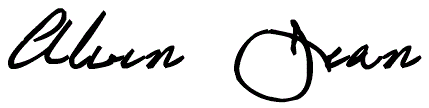 Alvin Dean